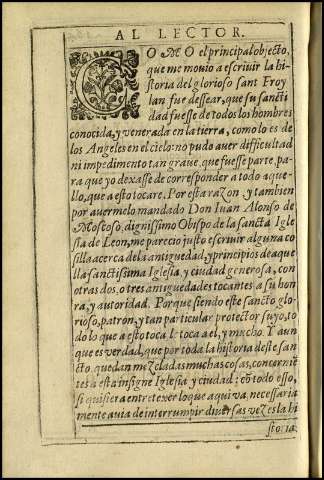 AL LECTOR.
COMO el principal objecto,
que me mouio a escriuir la hi-
storia del glorioso sant Froy
lan fue dessear, que su sancti
dad fuesse de todos los hombres
conocida, y venerada en la tierra, como lo es de
los Angeles en el cielo: no pudo auer difficultad
ni impedimento tan graue, que fuesse parte, pa-
ra que yo dexasse de corresponder a todo aque-
llo, que a esto tocare. Por esta razon, y tambien
por auermelo mandado Don Iuan Alonso de
Moscoso, dignissimo Obispo de la sancta Igle
sia de Leon, me parecio justo escriuir alguna co
silla acerca de la antiguedad, y principios de aque
lla sanctissima Iglesia, y ciudad generosa, con
otras dos, o tres antiguedades tocantes a su hon
ra, y autoridad. Porque siendo este sancto glo-
rioso, patron, y tan particular protector suyo, to
do lo que a esto toca le toca a el, y mucho. Y aun
que es verdad, que por toda la historia deste san
cto, quedan mezcladas muchas cosas, concerniē
tes a esta insigne Iglesia, y ciudad: cō todo esso,
si quisiera entretexer lo que aqui va, necessaria
mente auia de interrumpir diuersas vezes la hi
storia